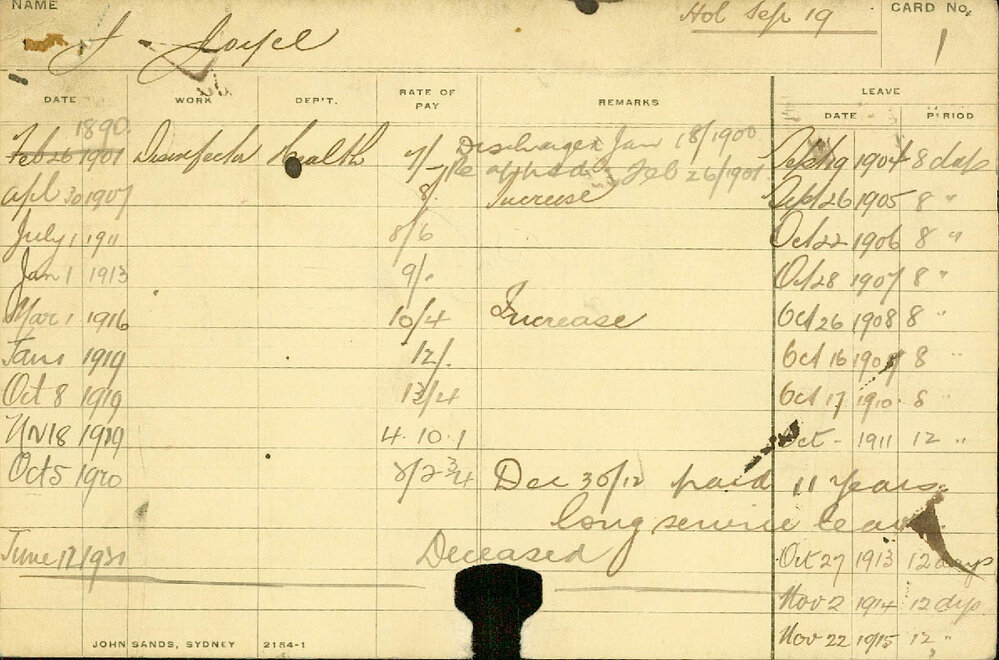 NAME
Hol Sep 19
CARD No.
1
J Joyce
DATE WORK DEP'T. RATE OF PAY REMARKS LEAVE
DATE PERIOD
1890
Feb 26 1901 Disinfector Health 7/- Discharged Jan 18/1900 Sept 19 1904 8 days
Re appntd Feb 26/1901
Apl 30 1907 8/. Increase Sept 26 1905 8 "
July 1 1911 8/6 Oct 22 1906 8 "
Jan 1 1913 9/. Oct 28 1907 8 "
Mar 1 1916 10/4 Increase Oct 26 1908 8 "
Jan 1 1919 12/. Oct 16 1909 8 "
Oct 8 1919 13/4 Oct 17 1910 8 "
Nv 18 1919 4.10.1 Oct - 1911 12 "
Oct 5 1920 Dec 30/12 paid 11 years
long service leave
June 1931 Deceased Oct 27 1913 12 days
Nov 2 1914 12 dys
Nov 22 1915 12 "
JOHN SANDS, SYDNEY 2154-1